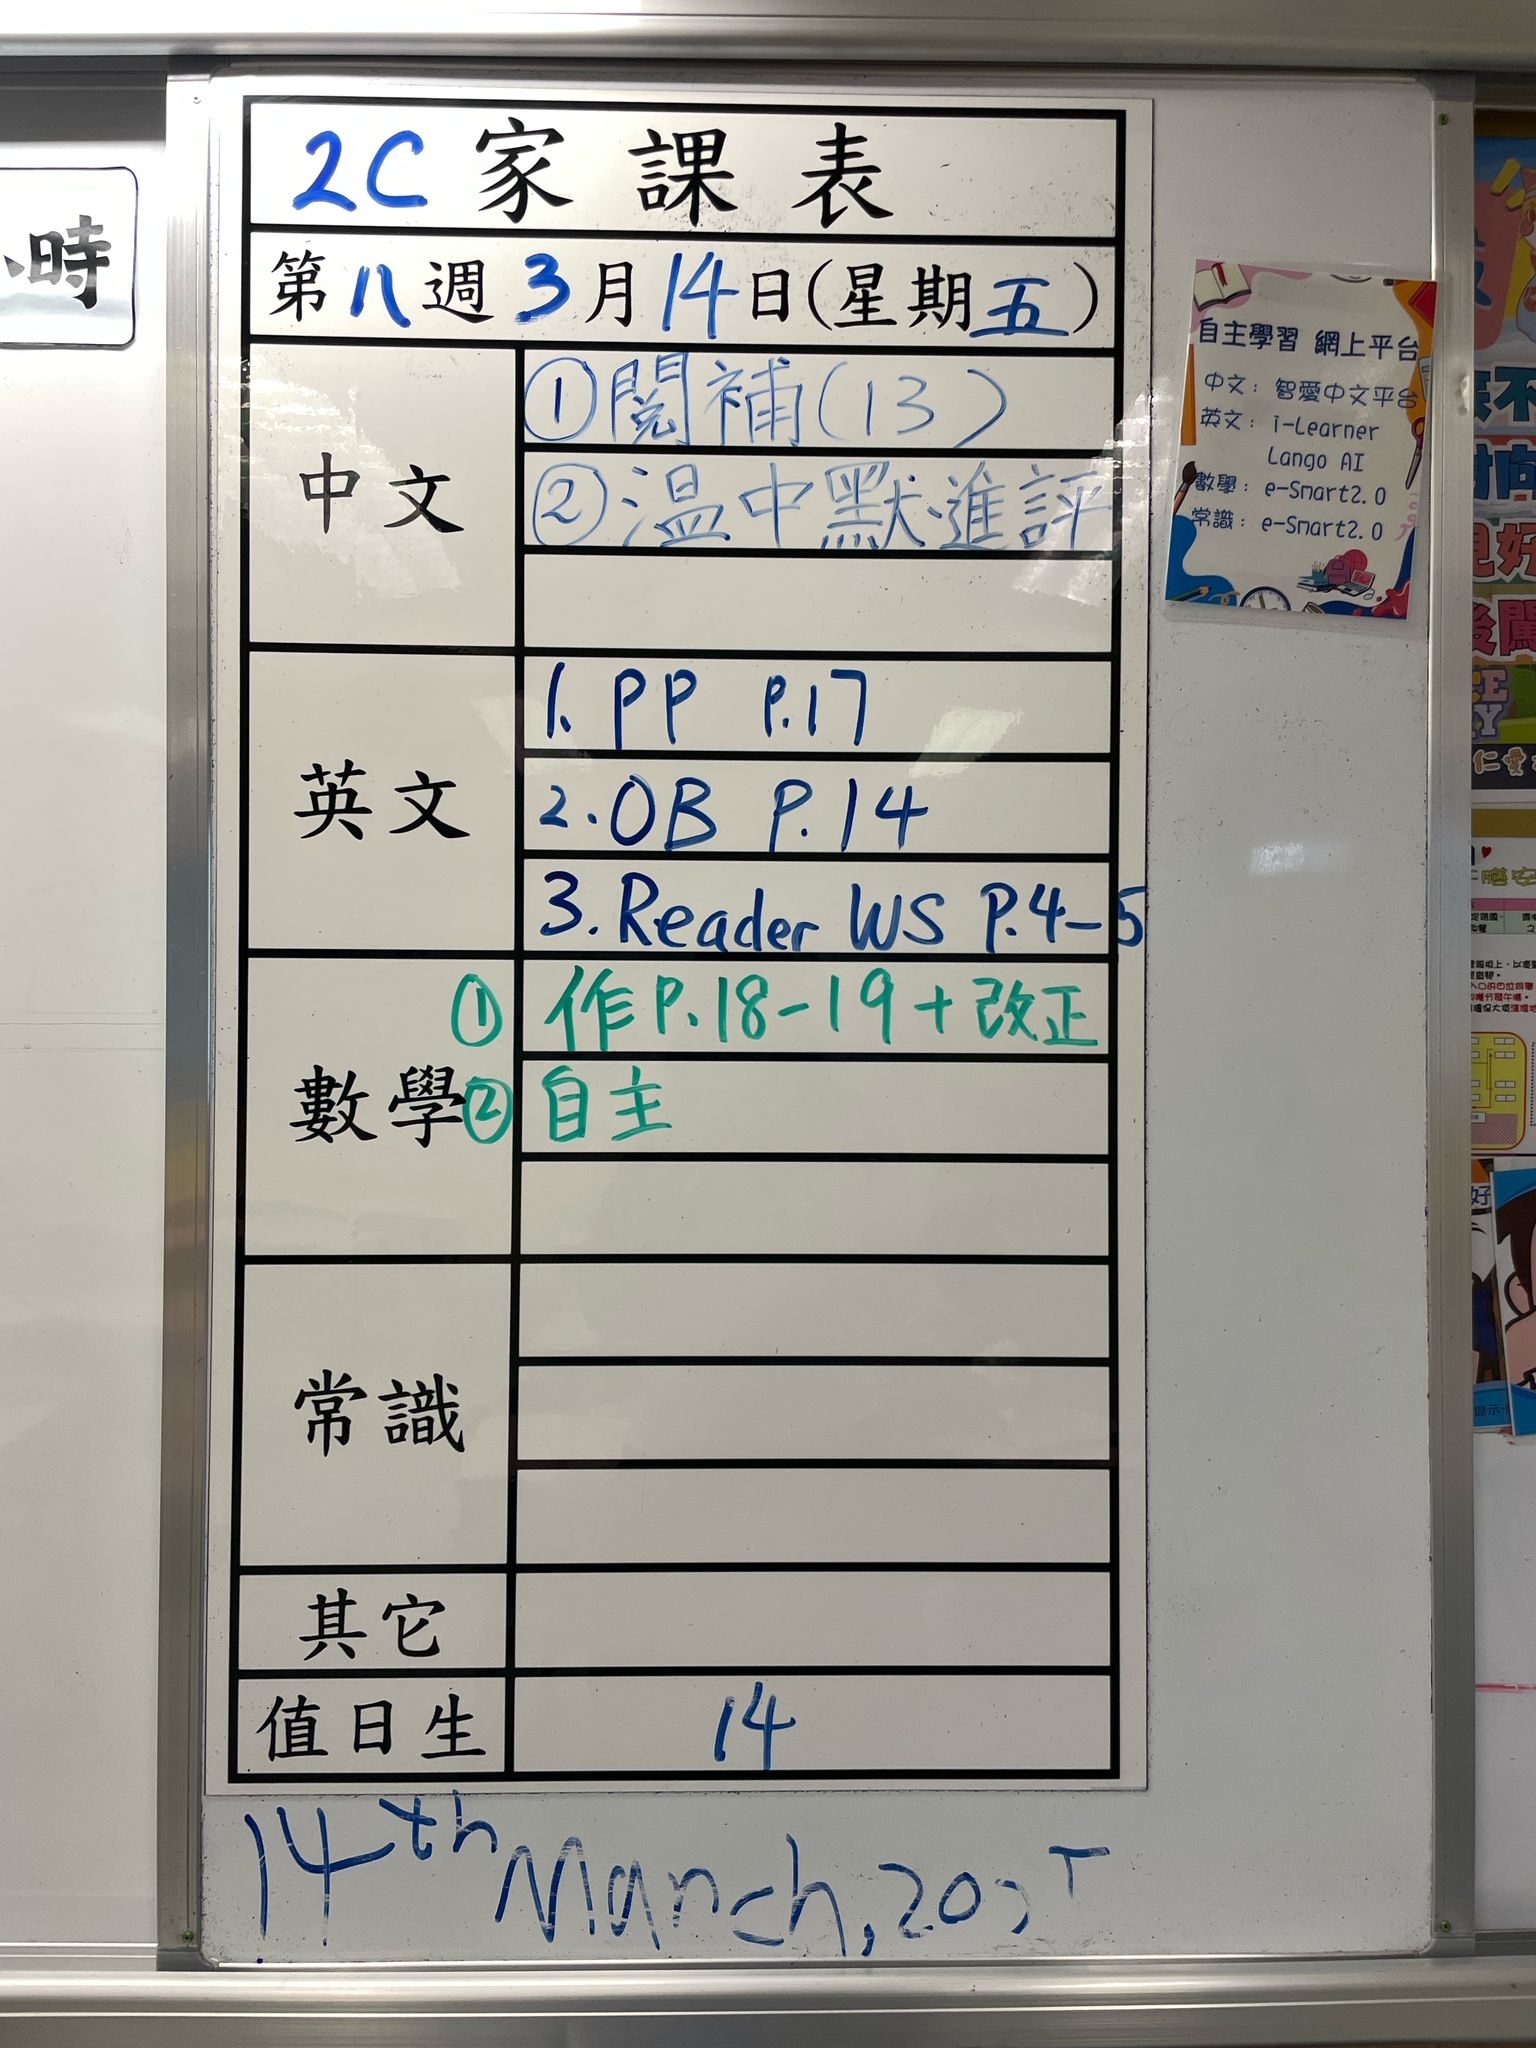 2C家課表
第八週3月14日(星期五)
中文
①閱補(13)
②溫中默進評
英文
1. PP P.17
2. OB P.14
3. Reader WS P.4-5
數學
① 作P.18-19+改正
② 自主
常識
其它
值日生
14
14th March, 202
時
自主學習 網上平台
中文：智愛中文平台
英文：i-Learner
Lango AI
數學：e-Smart2.0
常識：e-Smart2.0